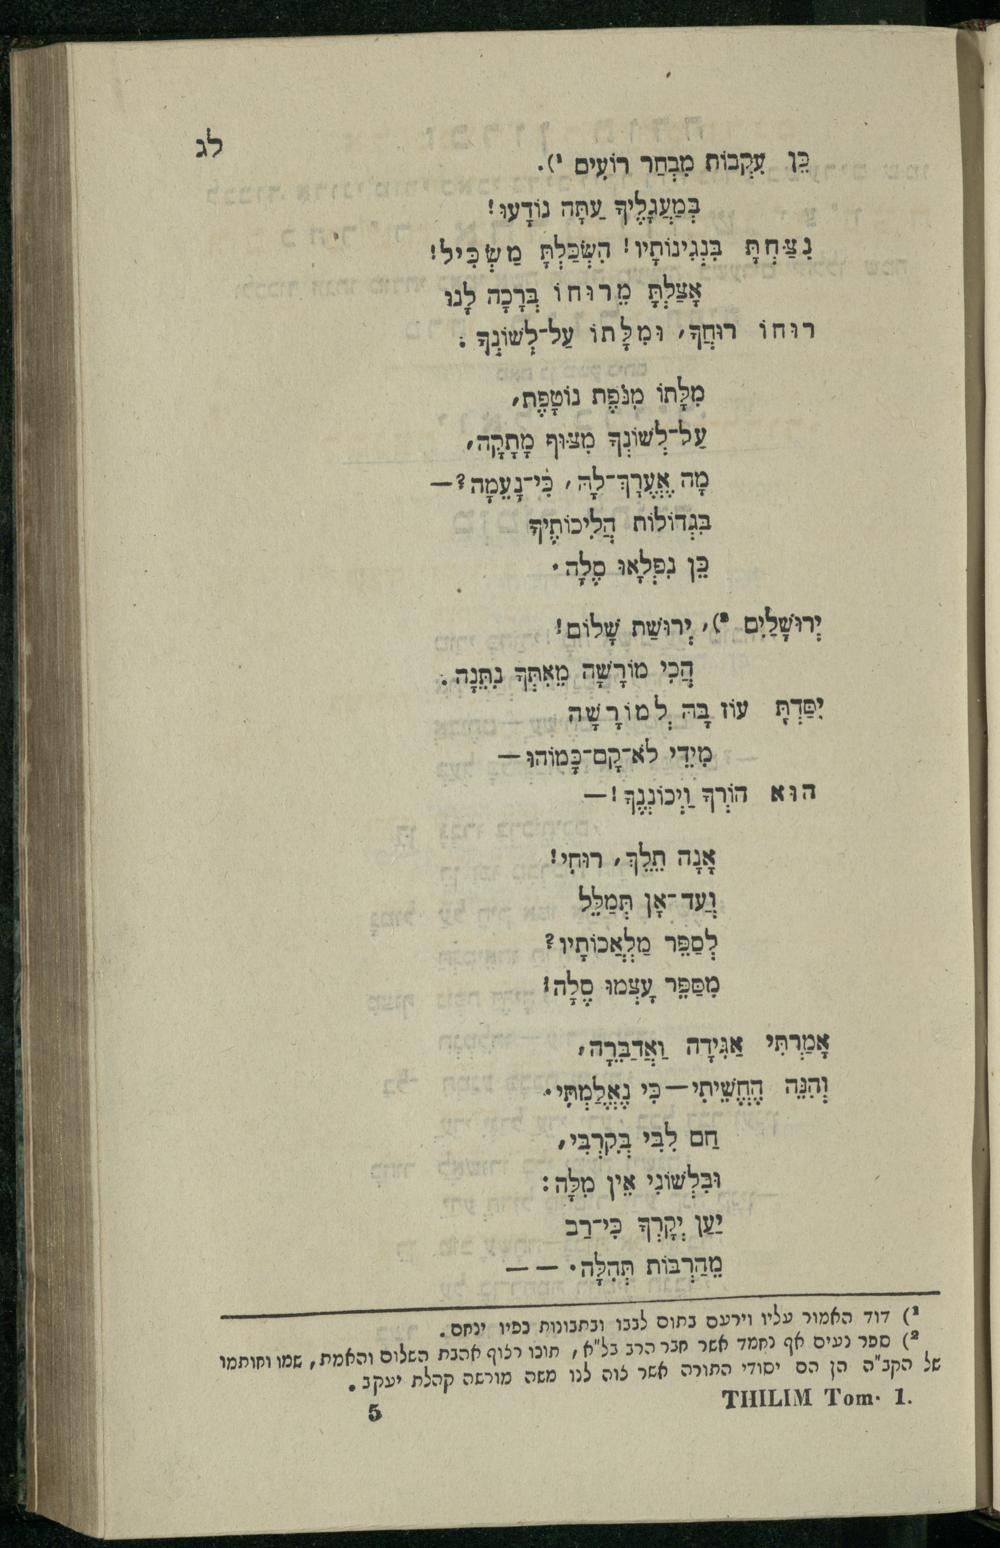 לג
כֵּן עִקְּבוֹת מִבְחַר רוֹעִים ¹).
בְּמַעְגָּלֶיךָ עַתָּה נוֹדָעוּ!
נִצַּחְתָּ בִּנְגִינוֹתָיו! הִשְׂכַּלְתָּ מַשְׂכִּיל!
אָצַלְתָּ מֵרוּחוֹ בְּרָכָה לָנוּ
רוּחוֹ רוּחֲךָ, וּמִלָּתוֹ עַל־לְשׁוֹנֶךָ:
מִלָּתוֹ מִנֹּפֶת נוֹטֶפֶת,
עַל־לְשׁוֹנְךָ מִצּוּף מָתָקָה,
מָה אֶעֱרָךְ־לָהּ, כִּי־נָעֵמָה?—
בִּגְדוֹלוֹת הֲלִיכוֹתֶיךָ
כֵּן נִפְלָאוּ סֶלָה.
יְרוּשָׁלַיִם ²), יְרוּשַׁת שָׁלוֹם!
הֲכִי מוֹרָשָׁה מֵאִתְּךָ נִתֵּנָה:
יִסַּדְתָּ עוֹז בָּהּ לְמוֹרָשָׁה
מִידֵי לֹא־קָם־כָּמוֹהוּ—
הוּא הוֹרְךָ וַיְכוֹנְנֶךָ!—
אָנָה תֵלֵךְ, רוּחִי!
וְעַד־אָן תְּמַלֵּל
לְסַפֵּר מַלְאֲכוֹתָיו?
מִסַּפֵּר עָצְמוּ סֶלָה!
אָמַרְתִּי אַגִּידָה וַאֲדַבֵּרָה,
וְהִנֵּה הֶחֱשֵׁיתִי—כִּי נֶאֱלַמְתִּי.
חַם לִבִּי בְּקִרְבִּי,
וּבִלְשׁוֹנִי אֵין מִלָּה:
יַעַן יְקָרְךָ כִּי־רַב
מֵהַרְבּוֹת תְּהִלָּה. — —
¹) דוד האמור עליו וירעם כתום לבבו ובתבונות כפיו ינחם.
²) ספר נעים אף נחמד אשר חבר הרב בל"א, תוכו רצוף אהבת השלום והאמת, שמו וחותמו
של הקב"ה הן הם יסודי התורה אשר צוה לנו משה מורשה קהלת יעקב.
THILIM Tom. 1. 5